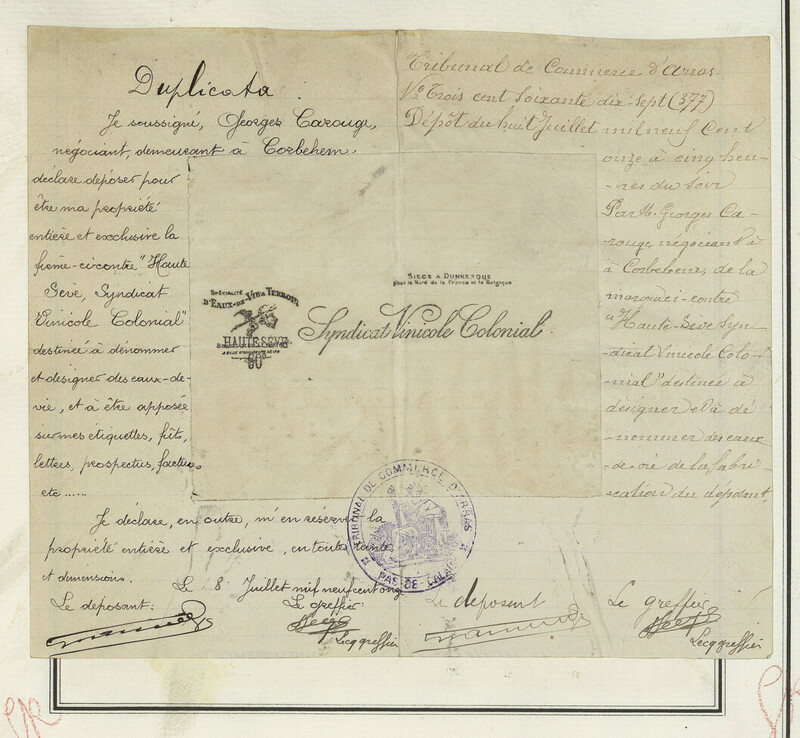 Duplicata.
Je soussigné, Georges Carouge,
négociant, demeurant à Corbehem.
déclare déposer pour
être ma propriété
entière et exclusive la
ci-contre "Haute
Sève, Syndicat
Vinicole Colonial"
destinée à dénommer
et désigner des eaux-de-
vie, et à être apposée
sur mes étiquettes, fûts,
letters, prospectus, factures
etc.....
Je déclare, en outre, m'en réserver la
propriété entière et exclusive, en toutes
et dimensions.
Le 8 Juillet mil neuf cent onze
Le déposant:
Le greffier
Lecq greffier
Tribunal de Commerce d'Arras.
No Trois cent soixante dix-sept (377)
Dépôt du huit Juillet mil neuf cent
onze à cinq heu-
-res du soir
Par M. Georges Ca-
rouge, négociant à
à Corbehem, de la
marque ci-contre
"Haute-Sève Syn-
dicat Vinicole Colo-
-nial" destinée à
désigner et à dé
-nommer des eaux
-de-vie de la fabri
-cation du déposant.
Le déposant
Le greffier
Lecq greffier
SPÉCIALITÉ
D'EAUX-DE-VIE TERROIR
HAUTE SÈVE
90
SIÈGE A DUNKERQUE
pour le Nord de la France et la Belgique
Syndicat Vinicole Colonial
TRIBUNAL DE COMMERCE D'ARRAS
PAS-DE-CALAIS